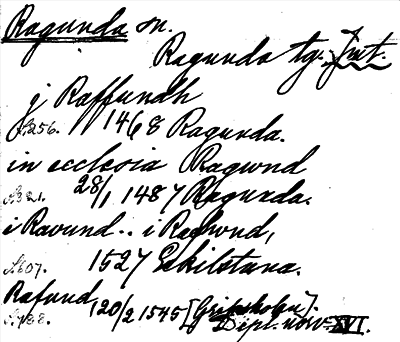 Ragunda sn.
Ragunda tg. Jmt.
j Raffundh
A 256. 1468 Ragunda.
in ecclesia Ragwnd
28/1 1487 Ragunda.
i Raound.. i Raghwnd,
1527 Eskilstuna.
Rafund, 20/2 1545 [Gripsholm].
Dipl. XVI.